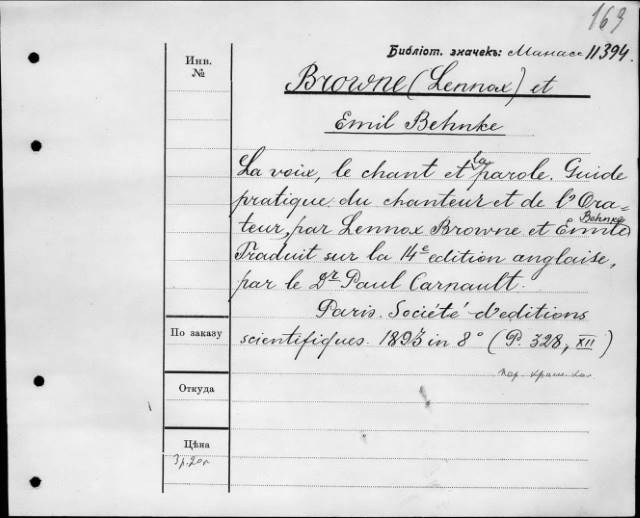 163
Библіот. значекъ: Манасс 11394.
Инв.
№
Browne (Lennox) et
Emil Behnke
La voix, le chant et la parole. Guide
pratique du chanteur et de l'Ora-
teur, par Lennox Browne et Emile Behnke
Traduit sur la 14e edition anglaise,
par le Dr Paul Carnault.
Paris. Société d'editions
scientifiques. 1893 in 8° (P. 328, XII)
По заказу
Откуда
Цѣна
3 р. 20 к